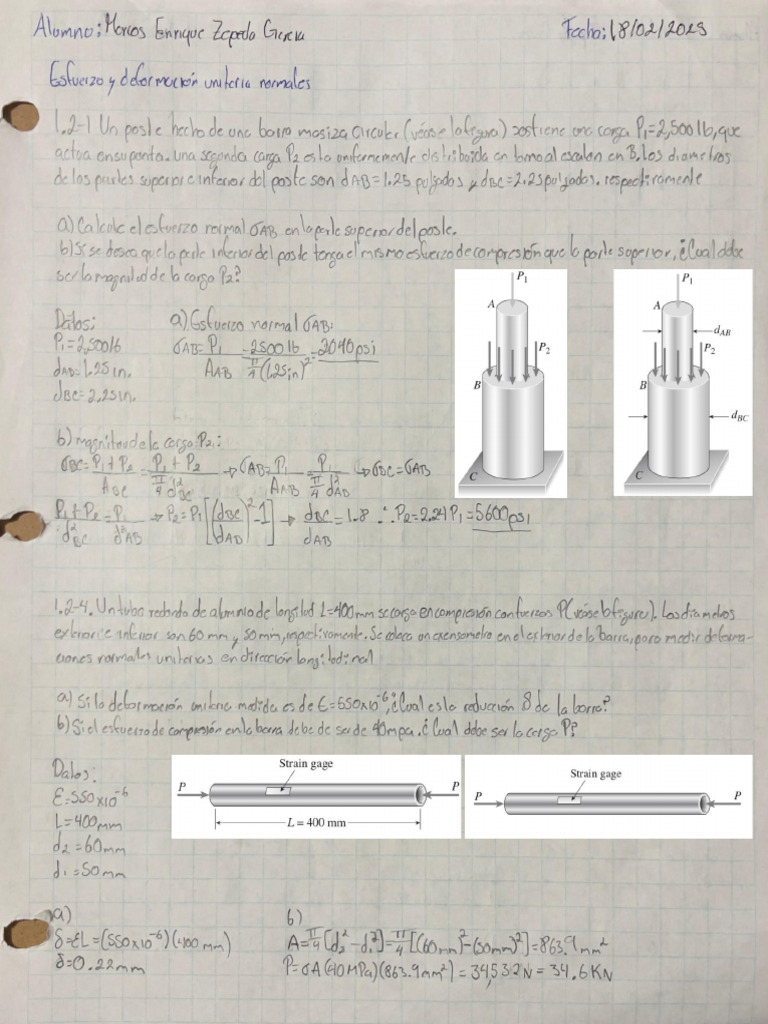 Alumno: Marcos Enrique Zepeda Garcia Fecha: 18/02/2025
Esfuerzo y deformación unitaria normales
1.2-1 Un poste hecho de una barra masiza circular (véase la figura) sostiene una carga P₁=2,500 lb, que
actua en su punta. una segunda carga P₂ esta uniformemente distribuida en torno al escalon en B. los diametros
de los partes superior e inferior del poste son dAB=1.25 pulgadas y dBC=2.25 pulgadas. respectivamente
a) Calcule el esfuerzo normal σAB en la parte superior del poste.
b) Si se desea que la parte inferior del poste tenga el mismo esfuerzo de compresión que la parte superior, ¿Cual debe
ser la magnitud de la carga P₂?
Datos:
P₁=2,500 lb
dAB=1.25 in.
dBC=2.25 in.
a) Esfuerzo normal σAB:
σAB = P₁/AAB = 2500 lb / (π/4 (1.25 in)²) = 2040 psi
P₁
A
P₂
B
C
P₁
A
dAB
P₂
B
dBC
C
b) magnitud de la carga P₂:
σBC = P₁+P₂/ABC = P₁+P₂/(π/4 d²BC) → σAB = P₁/AAB = P₁/(π/4 d²AB) → σBC = σAB
P₁+P₂/d²BC = P₁/d²AB → P₂ = P₁[(dBC/dAB)² -1] → dBC/dAB = 1.8 ∴ P₂ = 2.24 P₁ = 5600 psi
1.2-4. Un tubo redondo de aluminio de longitud L=400 mm se carga en compresión con fuerzas P (véase la figura). Los diametros
exterior e inferior son 60 mm y 50 mm, respectivamente. Se coloca un exensometro en el exterior de la barra, para medir deforma-
ciones normales unitarias en dirección longitudinal
a) Si la deformación unitaria medida es de ε=550x10⁻⁶, ¿Cual es la reducción δ de la barra?
b) Si el esfuerzo de compresión en la barra debe de ser de 40 mpa. ¿Cual debe ser la carga P?
Datos:
ε=550x10⁻⁶
L=400 mm
d₂=60 mm
d₁=50 mm
Strain gage
P P
L = 400 mm
Strain gage
P P
a)
δ=εL=(550x10⁻⁶)(400 mm)
δ=0.22 mm
b)
A=π/4 [d₂²-d₁²]=π/4 [(60mm)²-(50mm)²]=863.9 mm²
P=σA(40MPa)(863.9 mm²)=34,532 N=34.6 KN